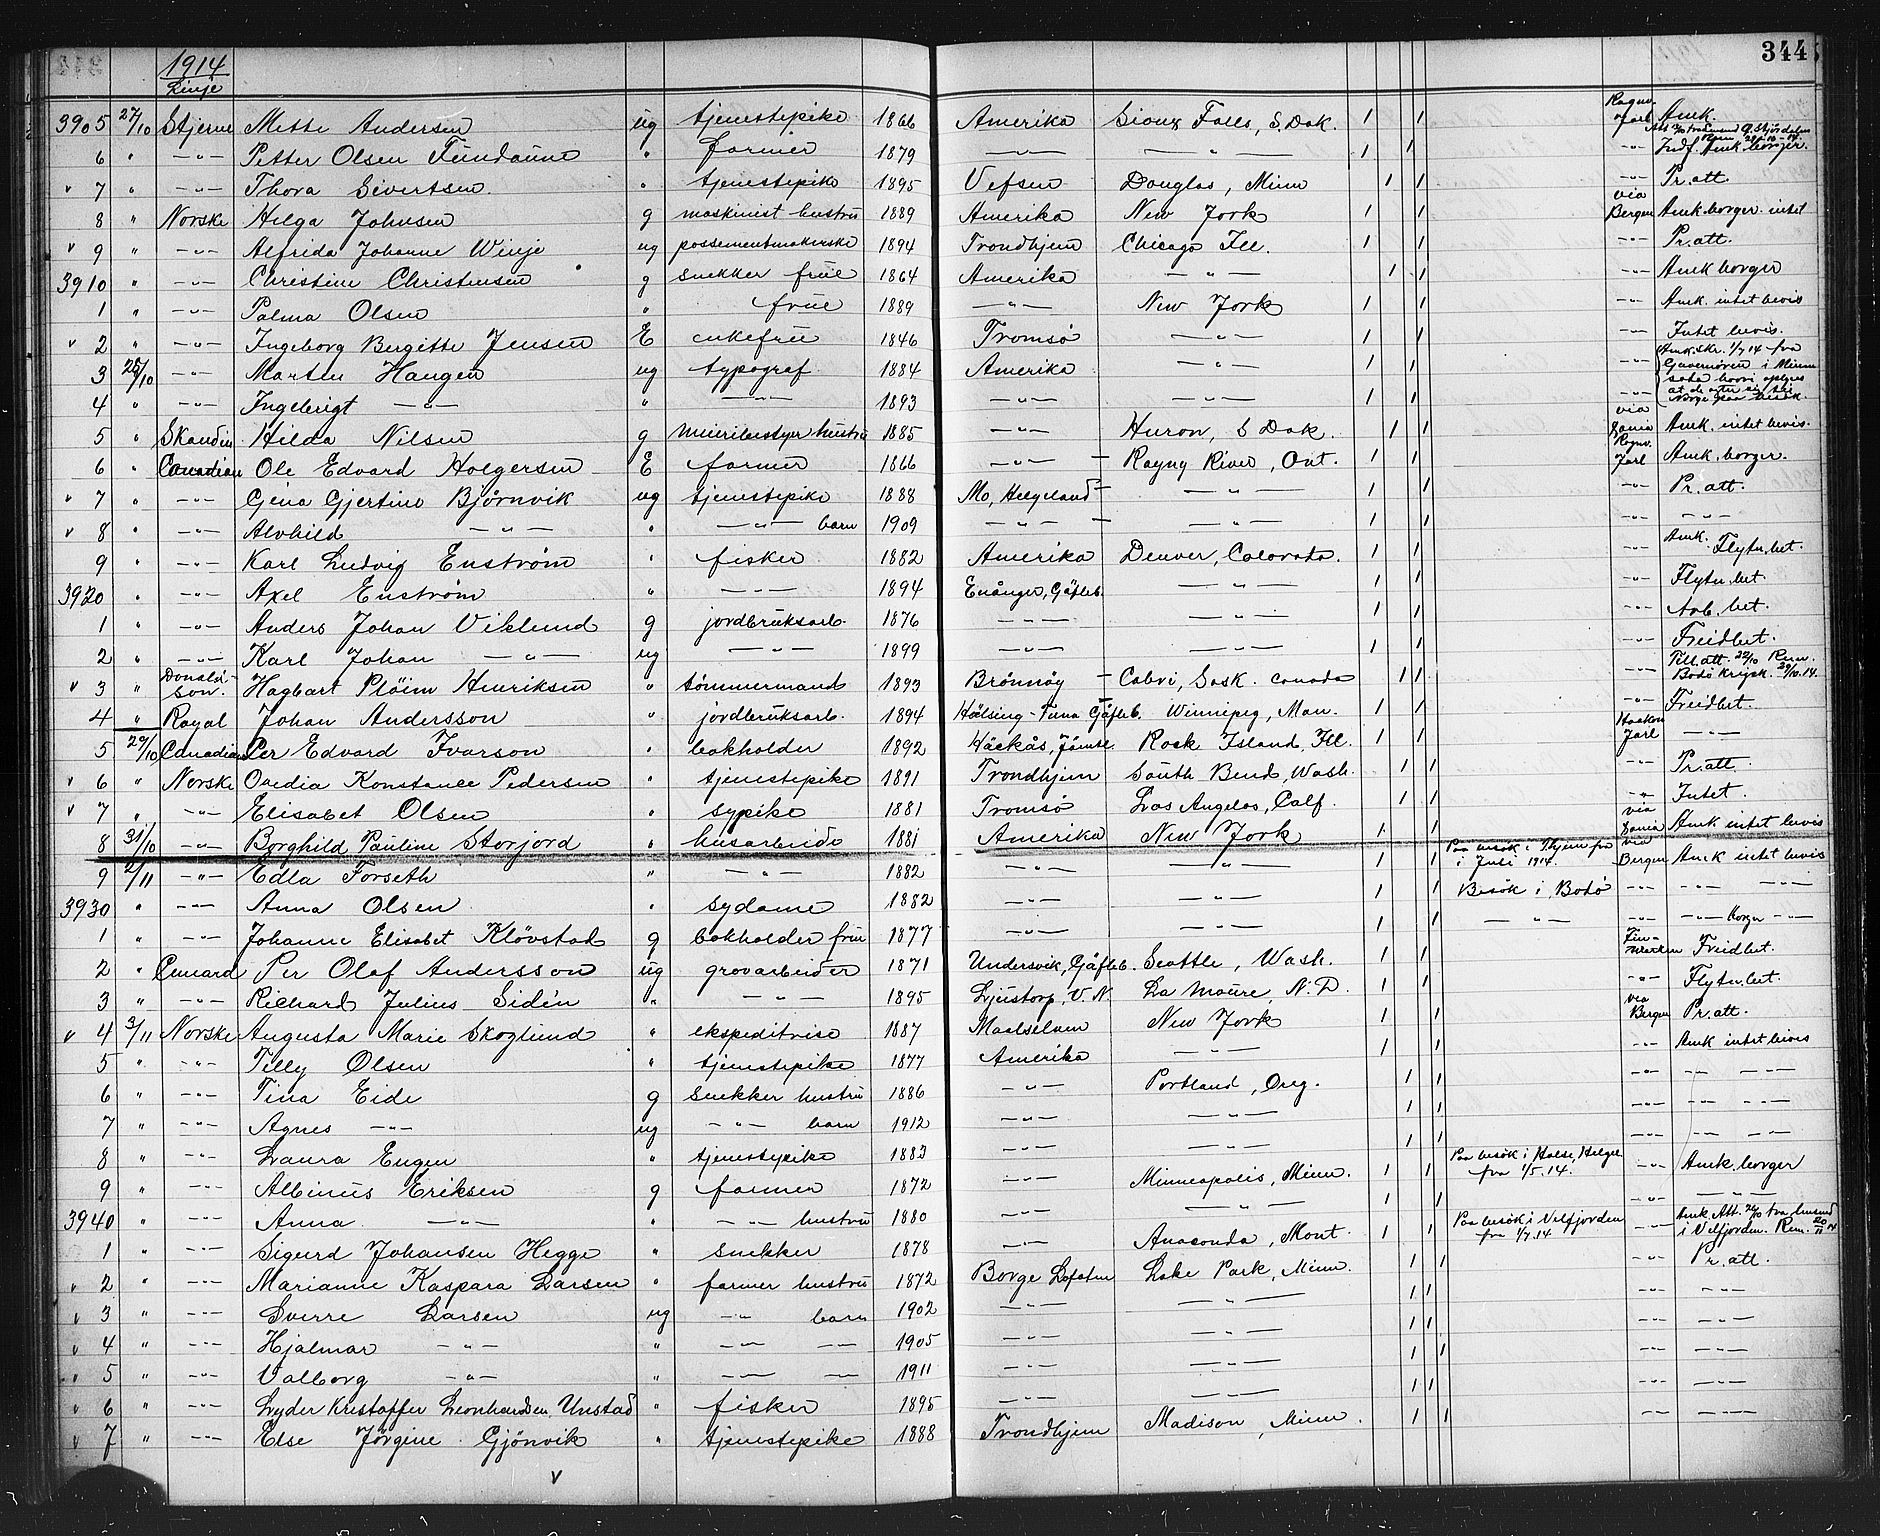 1914 344
Linje
3905 27/10 Stjerne Mette Andersen ug tjenestepike 1866 Amerika Sioux Falls, S. Dak. 1 1 Ragnv. Jarl Amk.
6 " —"— Petter Olsen Fundaune " farmer 1879 —"— —"— 1 1 —"— Indf. Amk borger.
v 7 " —"— Thora Sivertsen " tjenestepike 1895 Vefsen Douglas, Minn 1 1 —"— Pr. att.
8 " Norske Helga Johnsen g maskinist hustru 1889 Amerika New York 1 1 via Bergen Amk borger intet
v 9 " —"— Alfrida Johanne Winje ug possementmakerske 1894 Trondhjem Chicago Ill. 1 1 —"— Pr. att.
3910 " —"— Christine Christensen g snekker frue 1864 Amerika —"— 1 1 —"— Amk borger
1 " —"— Palma Olsen " frue 1889 —"— New York 1 1 —"— Amk. intet bevis
v 2 " —"— Ingeborg Bergitte Jensen E enkefrue 1846 Tromsø —"— 1 1 —"— Intet bevis.
3 28/10 —"— Martin Haugen ug typograf 1884 Amerika —"— 1 1 —"— Amk. skr. 1/7 14 fra Guvernøren i Minnesota
4 " —"— Ingebrigt —"— " —"— 1893 —"— —"— 1 1 —"—
5 " Skandin. Hilda Nilsen g meieribestyrer hustru 1885 —"— Huron, S Dak. 1 1 via Dania Amk. intet bevis.
6 " Canadian Ole Edvard Holgersen E farmer 1866 —"— Rayny River, Ont. 1 1 Ragnv. Jarl Amk. borger.
v 7 " —"— Gjena Gjertine Bjørnvik ug tjenestepike 1888 Mo, Helgeland —"— 1 1 —"— Pr. att.
v 8 " —"— Alvhild —"— " —"— barn 1909 —"— —"— 1 1 —"— —"—
9 " —"— Karl Ludvig Enström " fisker 1882 Amerika Denver, Colorado. 1 1 —"— Amk. Flytn. bet.
3920 " —"— Axel Enström " —"— 1894 Enånger, Gäfleb. —"— 1 1 —"— Flytn bet
1 " —"— Anders Johan Viklund g jordbruksarb. 1876 —"— —"— 1 1 —"— Arb. bet.
2 " —"— Karl Johan —"— ug —"— 1899 —"— —"— 1 1 —"— Freidbet.
v 3 " Donaldson. Hagbart Pløim Henriksen " tömmermand 1893 Brønnøy Cabri, Sask. Canada 1 1 —"— Till. att. 22/10 Rem. Bodö krigsk. 29/10.14.
4 " Royal Johan Andersson " jordbruksarb. 1894 Hälsing-Tuna Gäfleb. Winnipeg, Man. 1 1 —"— Freidbet.
5 29/10 Canadian Per Edvard Ivarson " bokholder 1892 Häckås, Jämtl. Rock Island, Ill. 1 1 Haakon Jarl —"—
v 6 " Norske Ovedia Konstance Pedersen " tjenestepike 1891 Trondhjem South Bend, Wash. 1 1 —"— Pr. att.
v 7 " —"— Elisabet Olsen " sypike 1881 Tromsø Los Angelos, Calf. 1 1 —"— Intet.
8 31/10 —"— Borghild Pauline Storjord " husarbeide 1881 Amerika New York 1 1 via Dania Amk intet bevis
9 2/11 —"— Edla Forseth " —"— 1882 —"— —"— 1 1 Paa besök i Thjem fra i Juni 1914. via Bergen Amk intet bevis
3930 " —"— Anna Olsen " sydame 1882 —"— —"— 1 1 Besök i Bodø —"— —"— —"—
1 " —"— Johanne Elisabet Klövstad g bokholder frue 1877 —"— —"— 1 1 —"— —"— —"— borger —"—
2 " Cunard Per Olof Andersson ug grovarbeider 1871 Undersvik, Gäfleb. Seattle, Wash. 1 1 Finmarken Freidbet.
3 " —"— Richard Julius Sidén " —"— 1895 Ljustorp, V. N. La Moure, N. D. 1 1 —"— Flytn. bet.
v 4 3/11 Norske Augusta Marie Skoglund " ekspeditrise 1887 Maalselven New York 1 1 via Bergen Pr. att.
5 " —"— Tilly Olsen " tjenestepike 1877 Amerika —"— 1 1 —"— Amk intet bevis
6 " —"— Tina Eide g snekker hustru 1886 —"— Portland, Oreg. 1 1 —"— —"— —"—
7 " —"— Agnes —"— ug —"— barn 1912 —"— —"— 1 1 —"— —"— —"—
8 " —"— Laura Engen " tjenestepike 1883 —"— —"— 1 1 —"— —"— —"—
9 " —"— Albinus Eriksen g farmer 1872 —"— Minneapolis, Minn. 1 1 Paa besök i Halse, Helgel. fra 1/5. 14. —"— Amk. borger
3940 " —"— Anna —"— " —"— hustru 1880 —"— —"— 1 1 —"— —"—
1 " —"— Sigurd Johansen Hegge " snekker 1878 —"— Anaconda, Mont. 1 1 Paa besök i Velfjorden fra 1/7.14 —"— Amk Att. 26/10 fra lensmd i Velfjorden. Rem. 20/11 14
v 2 " —"— Marianne Kaspara Larsen " farmer hustru 1872 Borge Lofoten Lake Park, Minn. 1 1 —"— Pr. att.
v 3 " —"— Sverre Larsen ug —"— barn 1902 —"— —"— 1 1 —"— —"—
v 4 " —"— Hjalmar —"— " —"— —"— 1905 —"— —"— 1 1 —"— —"—
v 5 " —"— Valborg —"— " —"— —"— 1911 —"— —"— 1 1 —"— —"—
v 6 " —"— Lyder Kristoffer Leonhardsen Unstad " fisker 1895 —"— —"— 1 1 —"— —"—
v 7 " —"— Else Jörgine Gjönvik " tjenestepike 1888 Trondhjem Madison, Minn. 1 1 —"— —"—
v